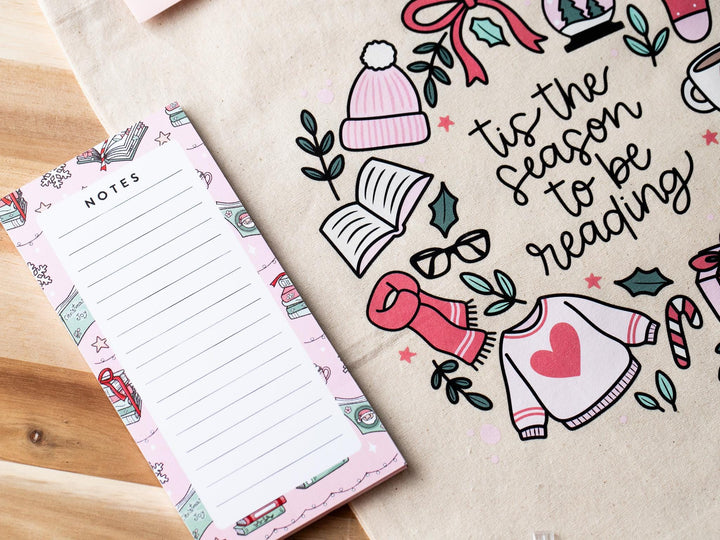 NOTES
tis the
season
to be
reading